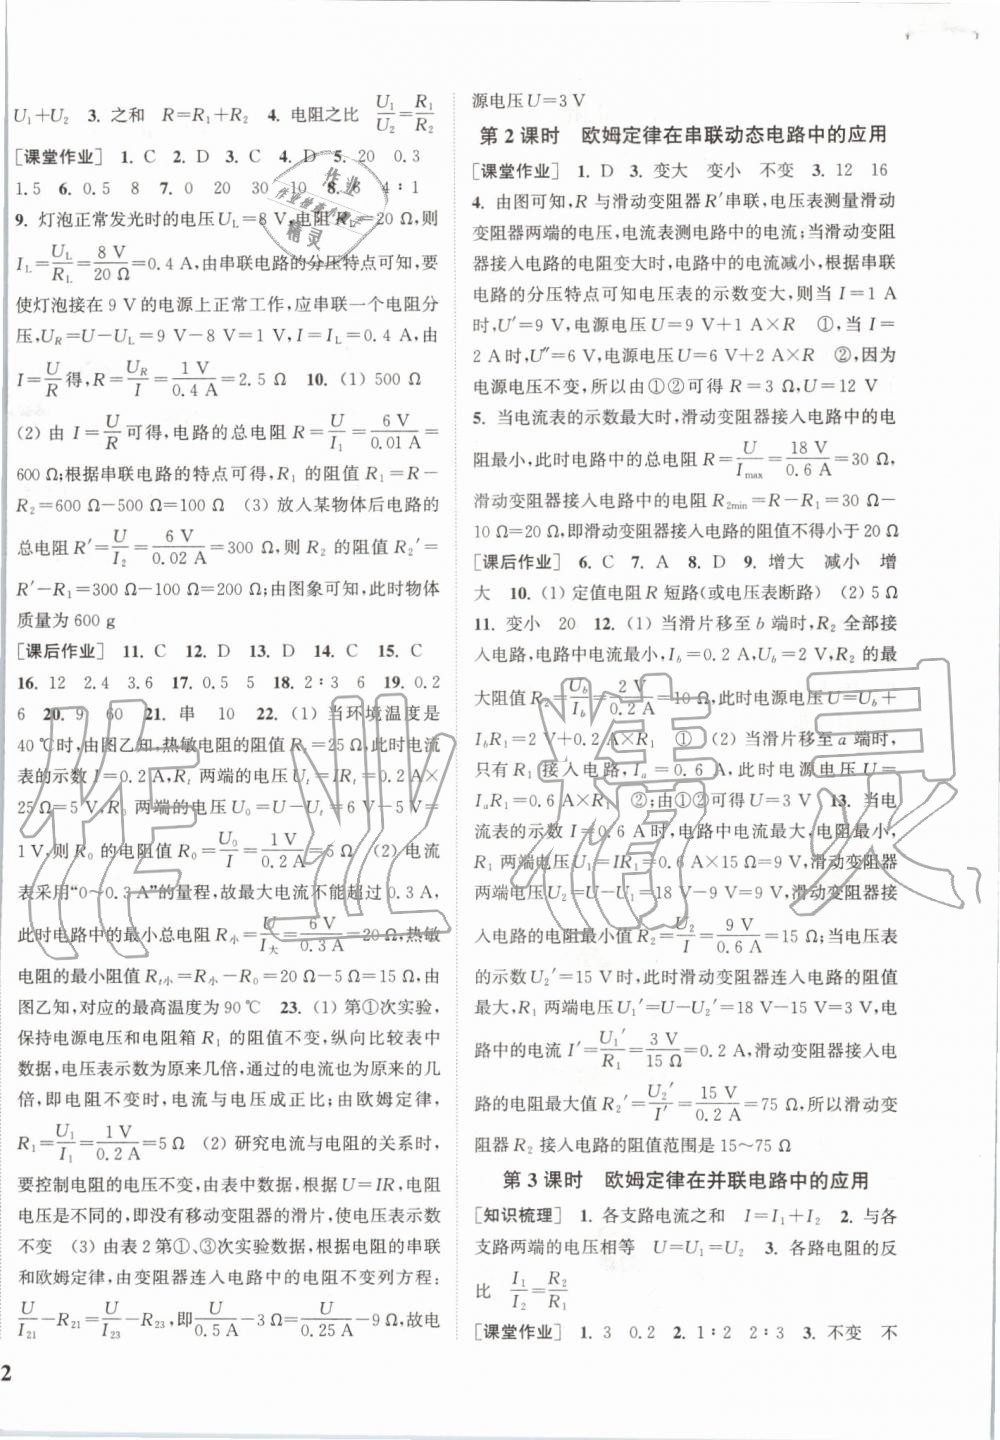 U₁+U₂ 3. 之和 R=R₁+R₂ 4. 电阻之比 U₁/U₂=R₁/R₂
[课堂作业] 1. C 2. D 3. C 4. D 5. 20 0.3
1.5 6. 0.5 8 7. 0 20 30 10 8. 6 4∶1
9. 灯泡正常发光时的电压U_L=8 V,电阻R_L=20 Ω,则
I_L=U_L/R_L=8 V/20 Ω=0.4 A,由串联电路的分压特点可知,要
使灯泡接在 9 V的电源上正常工作,应串联一个电阻分
压,U_R=U-U_L=9 V-8 V=1 V,I=I_L=0.4 A,由
I=U/R得,R=U_R/I=1 V/0.4 A=2.5 Ω 10. (1) 500 Ω
(2) 由 I=U/R可得,电路的总电阻R=U/I₁=6 V/0.01 A=
600 Ω;根据串联电路的特点可得,R₁ 的阻值 R₁=R-
R₂=600 Ω-500 Ω=100 Ω (3) 放入某物体后电路的
总电阻R′=U/I₂=6 V/0.02 A=300 Ω,则 R₂ 的阻值 R₂′=
R′-R₁=300 Ω-100 Ω=200 Ω;由图象可知,此时物体
质量为 600 g
[课后作业] 11. C 12. D 13. D 14. C 15. C
16. 12 2.4 3.6 17. 0.5 5 18. 2∶3 6 19. 0.2
6 20. 9 60 21. 串 10 22. (1) 当环境温度是
40 ℃时,由图乙知,热敏电阻的阻值 Rₜ=25 Ω,此时电流
表的示数 I=0.2 A,Rₜ 两端的电压Uₜ=IRₜ=0.2 A×
25 Ω=5 V,R₀ 两端的电压U₀=U-Uₜ=6 V-5 V=
1 V,则 R₀ 的电阻值 R₀=U₀/I=1 V/0.2 A=5 Ω (2) 电流
表采用“0~0.3 A”的量程,故最大电流不能超过 0.3 A,
此时电路中的最小总电阻R小=U/I大=6 V/0.3 A=20 Ω,热敏
电阻的最小阻值 Rₜ小=R小-R₀=20 Ω-5 Ω=15 Ω,由
图乙知,对应的最高温度为90 ℃ 23. (1) 第①次实验,
保持电源电压和电阻箱 R₁ 的阻值不变,纵向比较表中数
据,电压表示数为原来几倍,通过的电流也为原来的几
倍,即电阻不变时,电流与电压成正比;由欧姆定律,
R₁=U₁/I₁=1 V/0.2 A=5 Ω (2) 研究电流与电阻的关系时,
要控制电阻的电压不变,由表中数据,根据U=IR,电阻
电压是不同的,即没有移动变阻器的滑片,使电压表示数
不变 (3) 由表 2 第①、③次实验数据,根据电阻的串联
和欧姆定律,由变阻器连入电路中的电阻不变列方程:
U/I₂₁-R₂₁=U/I₂₃-R₂₃,即U/0.5 A-3 Ω=U/0.25 A-9 Ω,故电
2
源电压U=3 V
第 2 课时 欧姆定律在串联动态电路中的应用
[课堂作业] 1. D 2. D 3. 变大 变小 不变 3. 12 16
4. 由图可知,R 与滑动变阻器R′串联,电压表测量滑动
变阻器两端的电压,电流表测电路中的电流;当滑动变阻
器接入电路的电阻变大时,电路中的电流减小,根据串联
电路的分压特点可知电压表的示数变大,则当 I=1 A
时,U′=9 V,电源电压U=9 V+1 A×R ①,当 I=
2 A时,U″=6 V,电源电压U=6 V+2 A×R ②,因为
电源电压不变,所以由①②可得 R=3 Ω,U=12 V
5. 当电流表的示数最大时,滑动变阻器接入电路中的电
阻最小,此时电路中的总电阻 R=U/Imax=18 V/0.6 A=30 Ω,
滑动变阻器接入电路中的电阻 R2min=R-R₁=30 Ω-
10 Ω=20 Ω,即滑动变阻器接入电路的阻值不得小于20 Ω
[课后作业] 6. C 7. A 8. D 9. 增大 减小 增
大 10. (1) 定值电阻R 短路(或电压表断路) (2) 5 Ω
11. 变小 20 12. (1) 当滑片移至b 端时,R₂ 全部接
入电路,电路中电流最小,I_b=0.2 A,U_b=2 V,R₂ 的最
大阻值 R₂=U_b/I_b=2 V/0.2 A=10 Ω,此时电源电压U=U_b+
I_bR₁=2 V+0.2 A×R₁ ① (2) 当滑片移至a 端时,
只有 R₁ 接入电路,I_a=0.6 A,此时电源电压 U=
I_aR₁=0.6 A×R₁ ②;由①②可得U=3 V 13. 当电
流表的示数 I=0.6 A时,电路中电流最大,电阻最小,
R₁ 两端电压U₁=IR₁=0.6 A×15 Ω=9 V,滑动变阻器
两端电压U₂=U-U₁=18 V-9 V=9 V,滑动变阻器接
入电路的电阻最小值 R₂=U₂/I=9 V/0.6 A=15 Ω;当电压表
的示数U₂′=15 V时,此时滑动变阻器连入电路的阻值
最大,R₁ 两端电压U₁′=U-U₂′=18 V-15 V=3 V,电
路中的电流 I′=U₁′/R₁=3 V/15 Ω=0.2 A,滑动变阻器接入电
路的电阻最大值 R₂′=U₂′/I′=15 V/0.2 A=75 Ω,所以滑动变
阻器R₂ 接入电路的阻值范围是 15~75 Ω
第 3 课时 欧姆定律在并联电路中的应用
[知识梳理] 1. 各支路电流之和 I=I₁+I₂ 2. 与各
支路两端的电压相等 U=U₁=U₂ 3. 各路电阻的反
比 I₁/I₂=R₂/R₁
[课堂作业] 1. 3 0.2 2. 1∶2 2∶3 3. 不变 不
作业精灵
作业
精灵